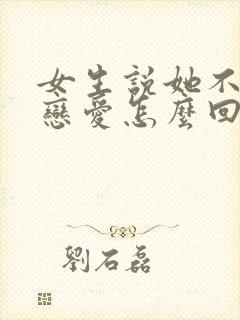 女生説她不
戀愛怎麼回
劉石磊